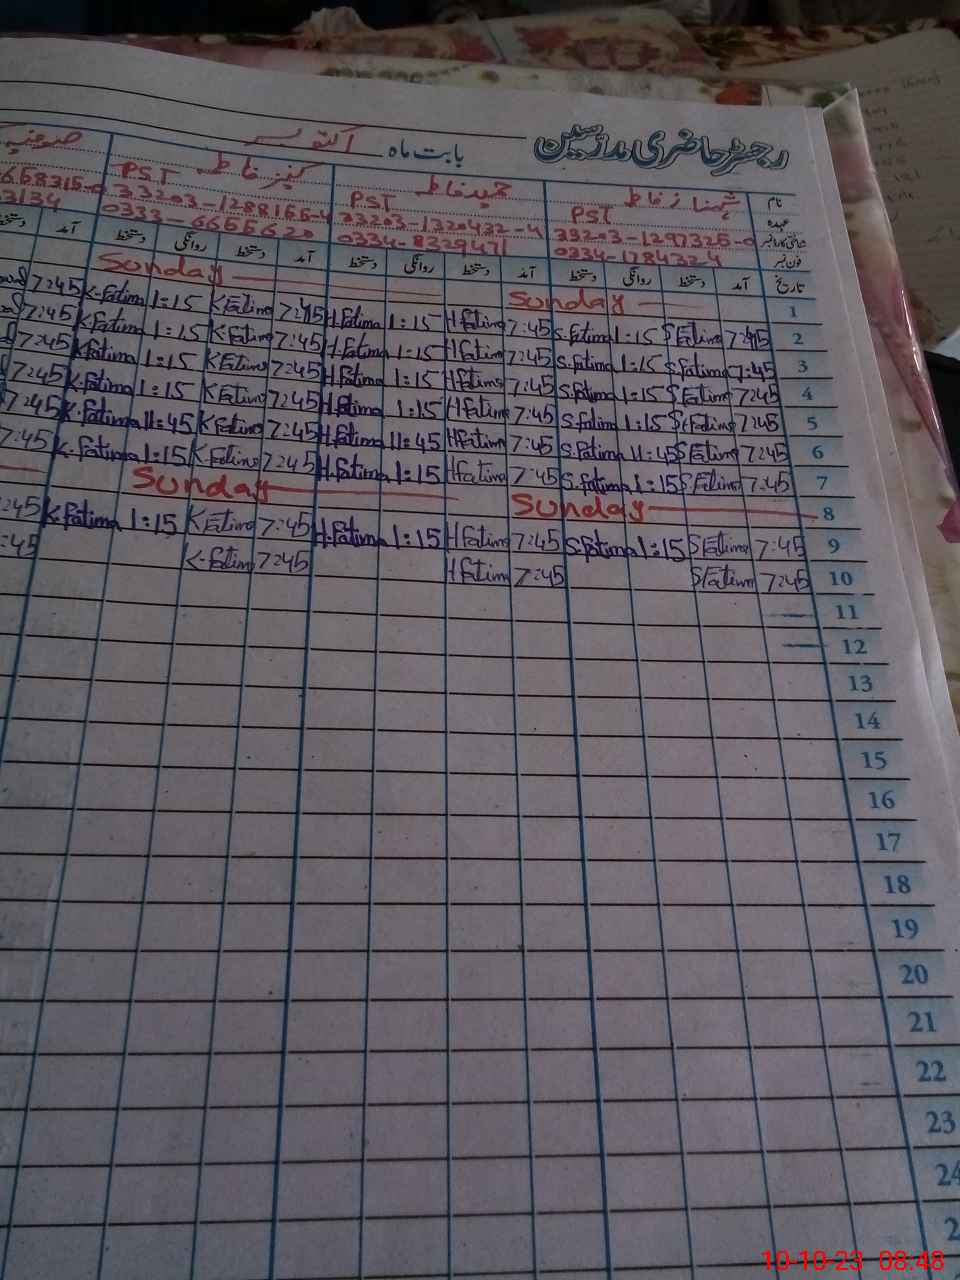 رجسٹر حاضری مدرسین بابت ماہ اکتوبر
نام شہناز فاطمہ حمید فاطمہ کنیز فاطمہ
عہدہ PST PST PST
شناختی کارڈ نمبر 33203-1297326-0 33203-1320432-4 33203-1288166-4
فون نمبر 0334-1784324 0334-8329471 0333-6656620 3134
تاریخ آمد دستخط روانگی دستخط آمد دستخط روانگی دستخط آمد دستخط روانگی دستخط آمد
1 Sunday Sunday
2 7:45 S Fatima 1:15 S.Fatima 7:45 H Fatima 1:15 H.Fatima 7:45 K Fatima 1:15 K.Fatima 7:45
3 7:45 S.Fatima 1:15 S.Fatima 7:45 H Fatima 1:15 H.Fatima 7:45 K Fatima 1:15 K.Fatima 7:45
4 7:45 S Fatima 1:15 S.Fatima 7:45 H Fatima 1:15 H.Fatima 7:45 K Fatima 1:15 K.Fatima 7:45
5 7:45 S Fatima 1:15 S.Fatima 7:45 H Fatima 1:15 H.Fatima 7:45 K Fatima 1:15 K.Fatima 7:45
6 7:45 S Fatima 11:45 S.Fatima 7:45 H Fatima 11:45 H.Fatima 7:45 K Fatima 11:45 K.Fatima 7:45
7 7:45 S Fatima 1:15 S.Fatima 7:45 H Fatima 1:15 H.Fatima 7:45 K Fatima 1:15 K.Fatima 7:45
8 Sunday Sunday
9 7:45 S Fatima 1:15 S.Fatima 7:45 H Fatima 1:15 H.Fatima 7:45 K Fatima 1:15 K.Fatima :45
10 7:45 S Fatima 7:45 H Fatima 7:45 K.Fatima :45
11
12
13
14
15
16
17
18
19
20
21
22
23
24
2
10-10-23 08:48